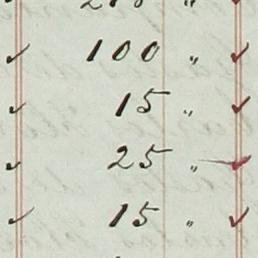 ✓ 100 " ✓
✓ 15 " ✓
✓ 25 " ✓
✓ 15 " ✓